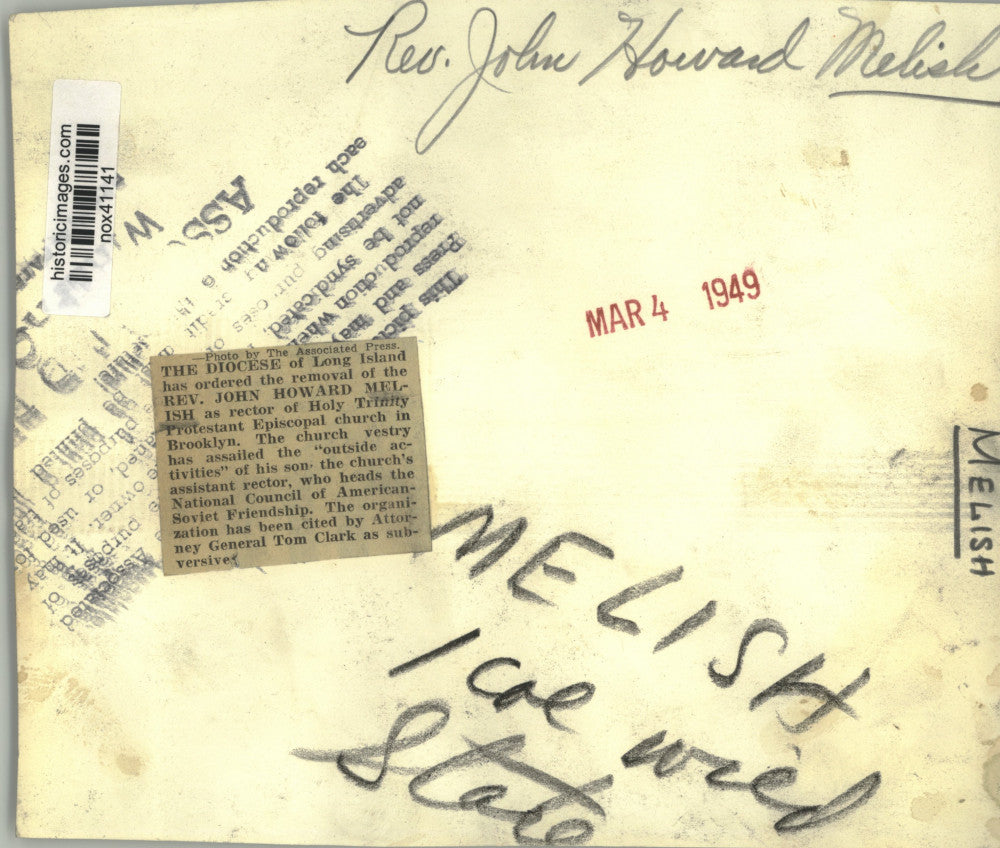 Rev. John Howard Melish
historicimages.com
nox41141
MAR 4 1949
each reproduction
The
advertising
not be syndicated
reproduction
Press and may
This
—Photo by The Associated Press.
THE DIOCESE of Long Island
has ordered the removal of the
REV. JOHN HOWARD MEL-
ISH as rector of Holy Trinity
Protestant Episcopal church in
Brooklyn. The church vestry
has assailed the "outside ac-
tivities" of his son, the church's
assistant rector, who heads the
National Council of American-
Soviet Friendship. The organi-
zation has been cited by Attor-
ney General Tom Clark as sub-
versive.
MELISH
MELISH
1 col
State